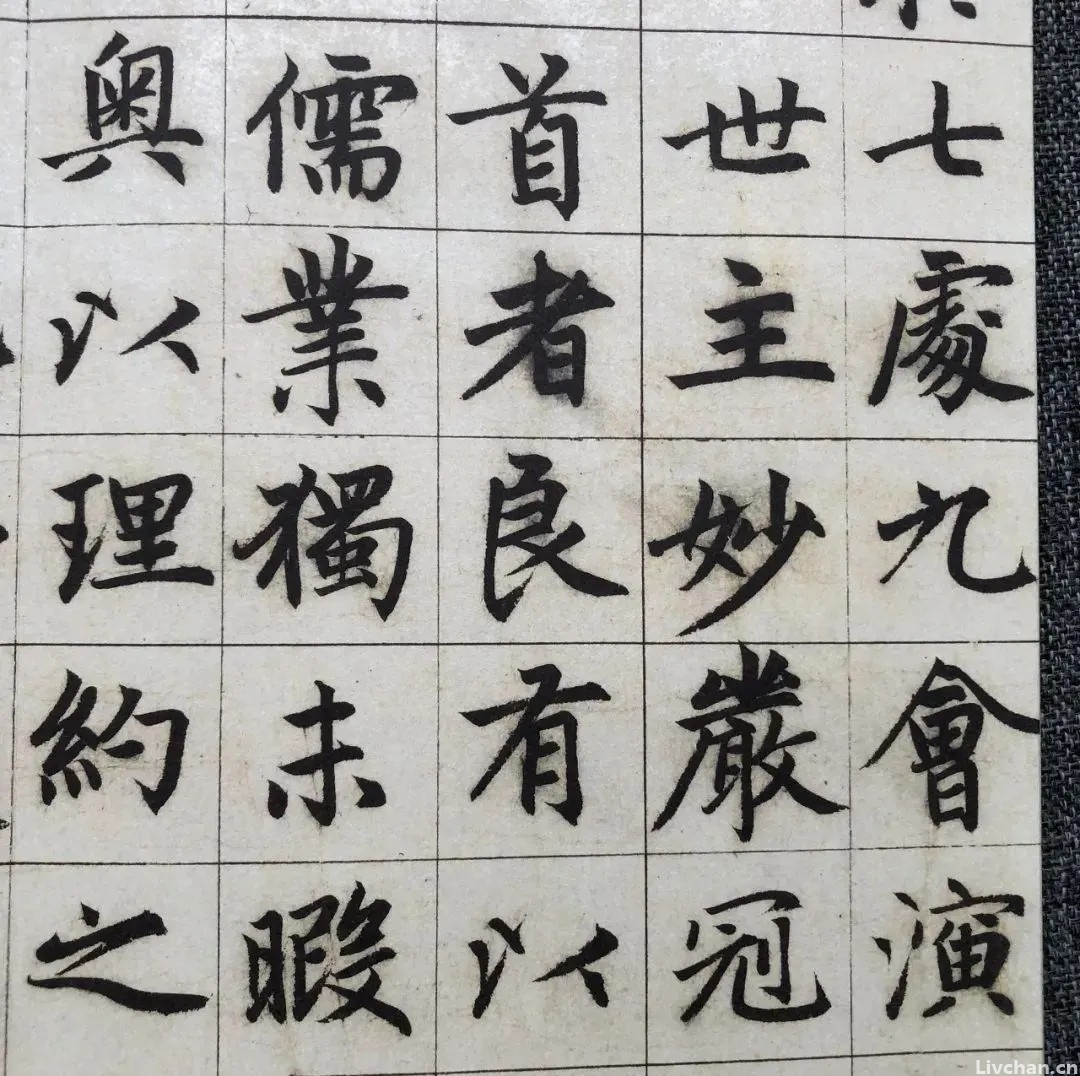 七處九會演
世主妙嚴冠
首者良有以
儒業獨未暇
奧以理約之
Livchan.cn